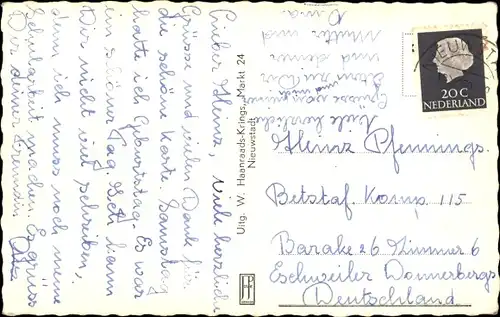 Lieber Heinz, Viele herzliche
Grüsse und vielen Dank für
die schöne Karte. Samstag
hatte ich Geburtstag. Es war
ein schöner Tag. Ich kann
Dir nicht viel schreiben,
denn ich muss noch meine
Schularbeit machen. Es grüss
Dir deiner Freundin
Uitg. W. Haanraads-Krings, Markt 24
Nieuwstadt
Viele herzliche
Grüsse von meine
und deiner
Mutter und
NIEUW
20C
NEDERLAND
Heinz Pfennings.
Betstaf. Kamp 115
Barake 26 Zimmer 6
Eschweiler Donnerbergs
Deutschland.